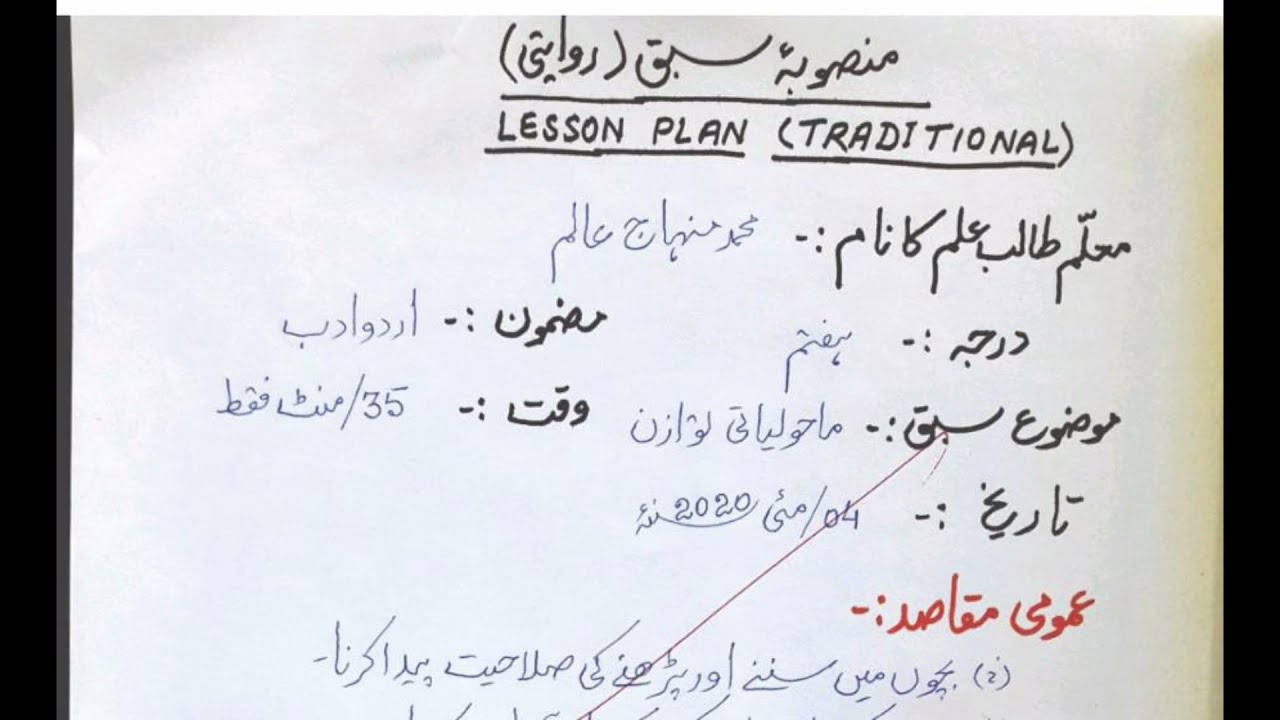 منصوبۂ سبق (روایتی)
LESSON PLAN (TRADITIONAL)
معلّم طالب علم کا نام :- محمد منہاج عالم
درجہ :- ہفتم مضمون :- اردو ادب
موضوع سبق :- ماحولیاتی توازن وقت :- 35/منٹ فقط
تاریخ :- 04/مئی 2020ء
عمومی مقاصد :-
بچوں میں سننے اور پڑھنے کی صلاحیت پیدا کرنا۔